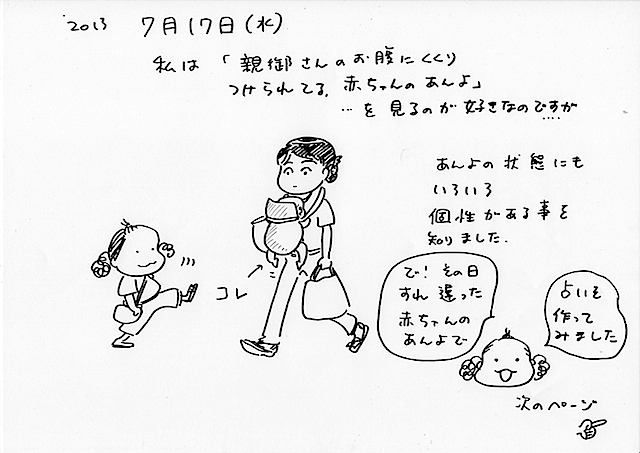 2013 7月17日(水)
私は「親御さんのお腹にくくり
つけられてる、赤ちゃんのあんよ」
…を見るのが好きなのですが
....
あんよの状態にも
いろいろ
個性がある事を
知りました.
コレ
で!その日
すれ違った
赤ちゃんの
あんよで
占いを
作って
みました
次のページ